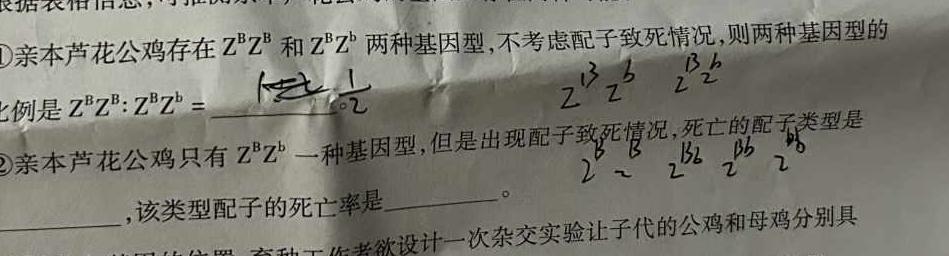 ①亲本芦花公鸡存在 ZᴮZᴮ 和 ZᴮZᵇ 两种基因型,不考虑配子致死情况,则两种基因型的
比例是 ZᴮZᴮ:ZᴮZᵇ = 1/2 。
Zᴮ Zᵇ ZᴮZᵇ
②亲本芦花公鸡只有 ZᴮZᵇ 一种基因型,但是出现配子致死情况,死亡的配子类型是
,该类型配子的死亡率是 。
欲设计一次杂交实验让子代的公鸡和母鸡分别具